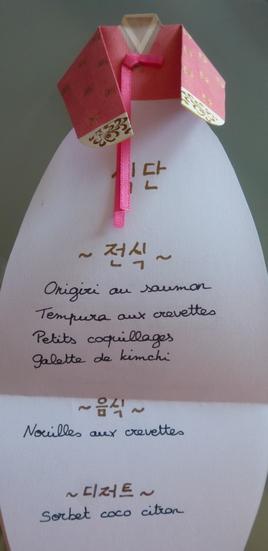 식단
~ 전식 ~
Onigiri au saumon
Tempura aux crevettes
Petits coquillages
Galette de kimchi
~ 음식 ~
Nouilles aux crevettes
~ 디저트 ~
Sorbet coco citron